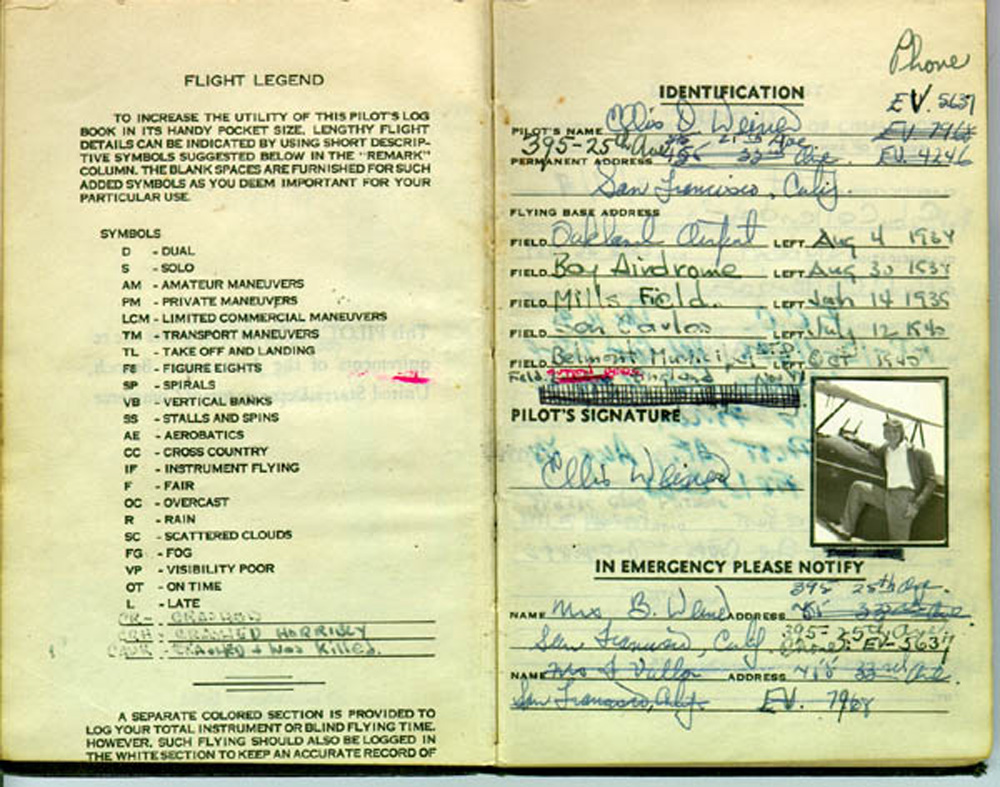 FLIGHT LEGEND
TO INCREASE THE UTILITY OF THIS PILOT'S LOG
BOOK IN ITS HANDY POCKET SIZE, LENGTHY FLIGHT
DETAILS CAN BE INDICATED BY USING SHORT DESCRIP-
TIVE SYMBOLS SUGGESTED BELOW IN THE "REMARK"
COLUMN. THE BLANK SPACES ARE FURNISHED FOR SUCH
ADDED SYMBOLS AS YOU DEEM IMPORTANT FOR YOUR
PARTICULAR USE.
SYMBOLS
D - DUAL
S - SOLO
AM - AMATEUR MANEUVERS
PM - PRIVATE MANEUVERS
LCM - LIMITED COMMERCIAL MANEUVERS
TM - TRANSPORT MANEUVERS
TL - TAKE OFF AND LANDING
F8 - FIGURE EIGHTS
SP - SPIRALS
VB - VERTICAL BANKS
SS - STALLS AND SPINS
AE - AEROBATICS
CC - CROSS COUNTRY
IF - INSTRUMENT FLYING
F - FAIR
OC - OVERCAST
R - RAIN
SC - SCATTERED CLOUDS
FG - FOG
VP - VISIBILITY POOR
OT - ON TIME
L - LATE
CR - CRASHED
CRH - CRASHED HORRIBLY
- CRASHED + Was Killed.
A SEPARATE COLORED SECTION IS PROVIDED TO
LOG YOUR TOTAL INSTRUMENT OR BLIND FLYING TIME.
HOWEVER, SUCH FLYING SHOULD ALSO BE LOGGED IN
THE WHITE SECTION TO KEEP AN ACCURATE RECORD OF
Phone
IDENTIFICATION
EV. 5637
PILOT'S NAME Ellis D Weiner EV. 7968
395-25th Ave
PERMANENT ADDRESS 33rd Ave. EV. 4246
San Francisco, Calif.
FLYING BASE ADDRESS
FIELD Oakland Airport LEFT Aug 4 1934
FIELD Bay Airdrome LEFT Aug 30 1934
FIELD Mills Field. LEFT Jan 14 1935
FIELD San Carlos LEFT July 12 1940
FIELD Belmont LEFT Oct 1940
Field. England
PILOT'S SIGNATURE
Ellis Weiner
IN EMERGENCY PLEASE NOTIFY
395 25th Ave.
NAME Mrs B. Weiner ADDRESS
San Francisco, Calif 395-25th Ave
Phone: EV-5637
NAME Mrs ADDRESS 33rd Ave.
San Francisco, Calif. EV. 7968